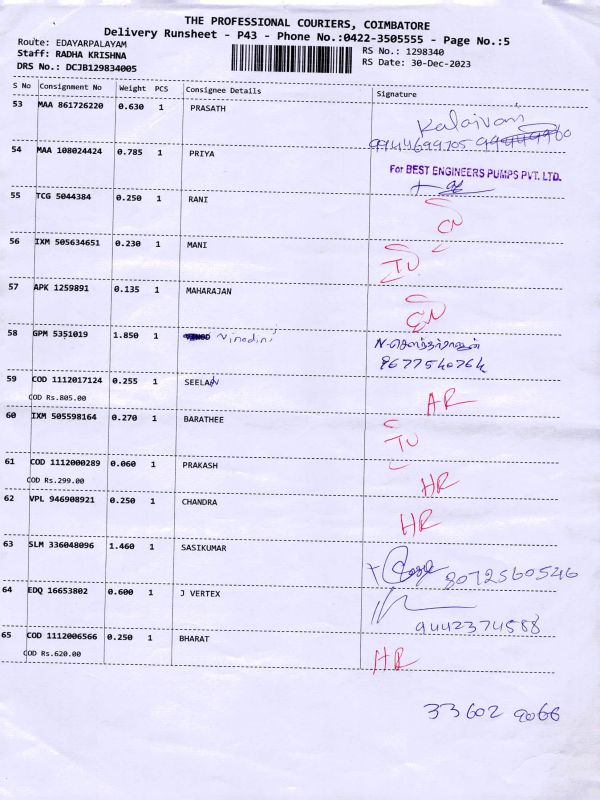 THE PROFESSIONAL COURIERS, COIMBATORE
Delivery Runsheet - P43 - Phone No.:0422-3505555 - Page No.:5
Route: EDAYARPALAYAM
Staff: RADHA KRISHNA
DRS No.: DCJB129834005
RS No.: 1298340
RS Date: 30-Dec-2023
S No Consignment No Weight PCS Consignee Details Signature
53 MAA 861726220 0.630 1 PRASATH Kalaivani
9944699705
54 MAA 108024424 0.785 1 PRIYA For BEST ENGINEERS PUMPS PVT. LTD.
55 TCG 5044384 0.250 1 RANI
56 IXM 505634651 0.230 1 MANI
57 APK 1259891 0.135 1 MAHARAJAN
58 GPM 5351019 1.850 1 Vinodini
9677540764
59 COD 1112017124 0.255 1 SEELAN AR
COD Rs.805.00
60 IXM 505598164 0.270 1 BARATHEE
61 COD 1112000289 0.060 1 PRAKASH HR
COD Rs.299.00
62 VPL 946908921 0.250 1 CHANDRA HR
63 SLM 336048096 1.460 1 SASIKUMAR 8072560546
64 EDQ 16653802 0.600 1 J VERTEX
9442374588
65 COD 1112006566 0.250 1 BHARAT HR
COD Rs.620.00
33602 9066